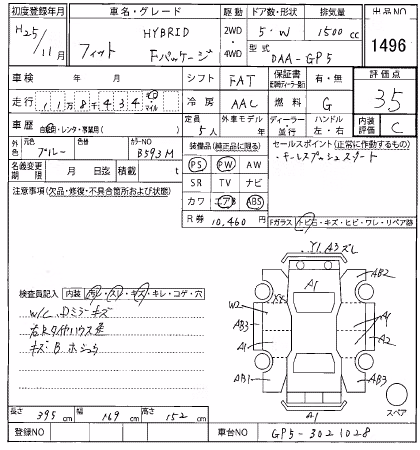 初度登録年月 車名・グレード 駆動 ドア数・形状 排気量 出品NO
H25/11月 フィット HYBRID Fパッケージ 2WD 4WD 5・W 1500cc 1496
型式 DAA-GP5
車検 年 月 シフト FAT 保証書 有・無 評価点
走行 11万8千434 キロ マイル 冷房 AAC 燃料 G 3.5
車歴 自家用・レンタ・事業用( ) 定員 5人 外車モデル 年 ディーラー 並行 ハンドル 左・右 内装評価 C
外色 ブルー 色替 カラーNO B593M 装備品(純正品に限る) セールスポイント(正常に作動するもの)
PS PW AW ・キーレスプッシュスタート
名義変更期限 月 日迄 積載 t SR TV ナビ
注意事項(欠品・修復・不具合箇所および状態) カワ エアB ABS
R券 10,460円 Fガラス トビ石・キズ・ヒビ・ワレ・リペア跡
Y1.A3ズレ
A1 AB2
検査員記入 内装 汚レ・スレ・キズ・キレ・コゲ・穴
W2 XX
W/C Dミラーキズ AB3 A1
左右タイヤハウス
A1 A2
キズ B ホシュウ
AB1 AB3
A1 スペア
長さ 395cm 幅 169cm 高さ 152cm
登録NO 車台NO GP5-3021028